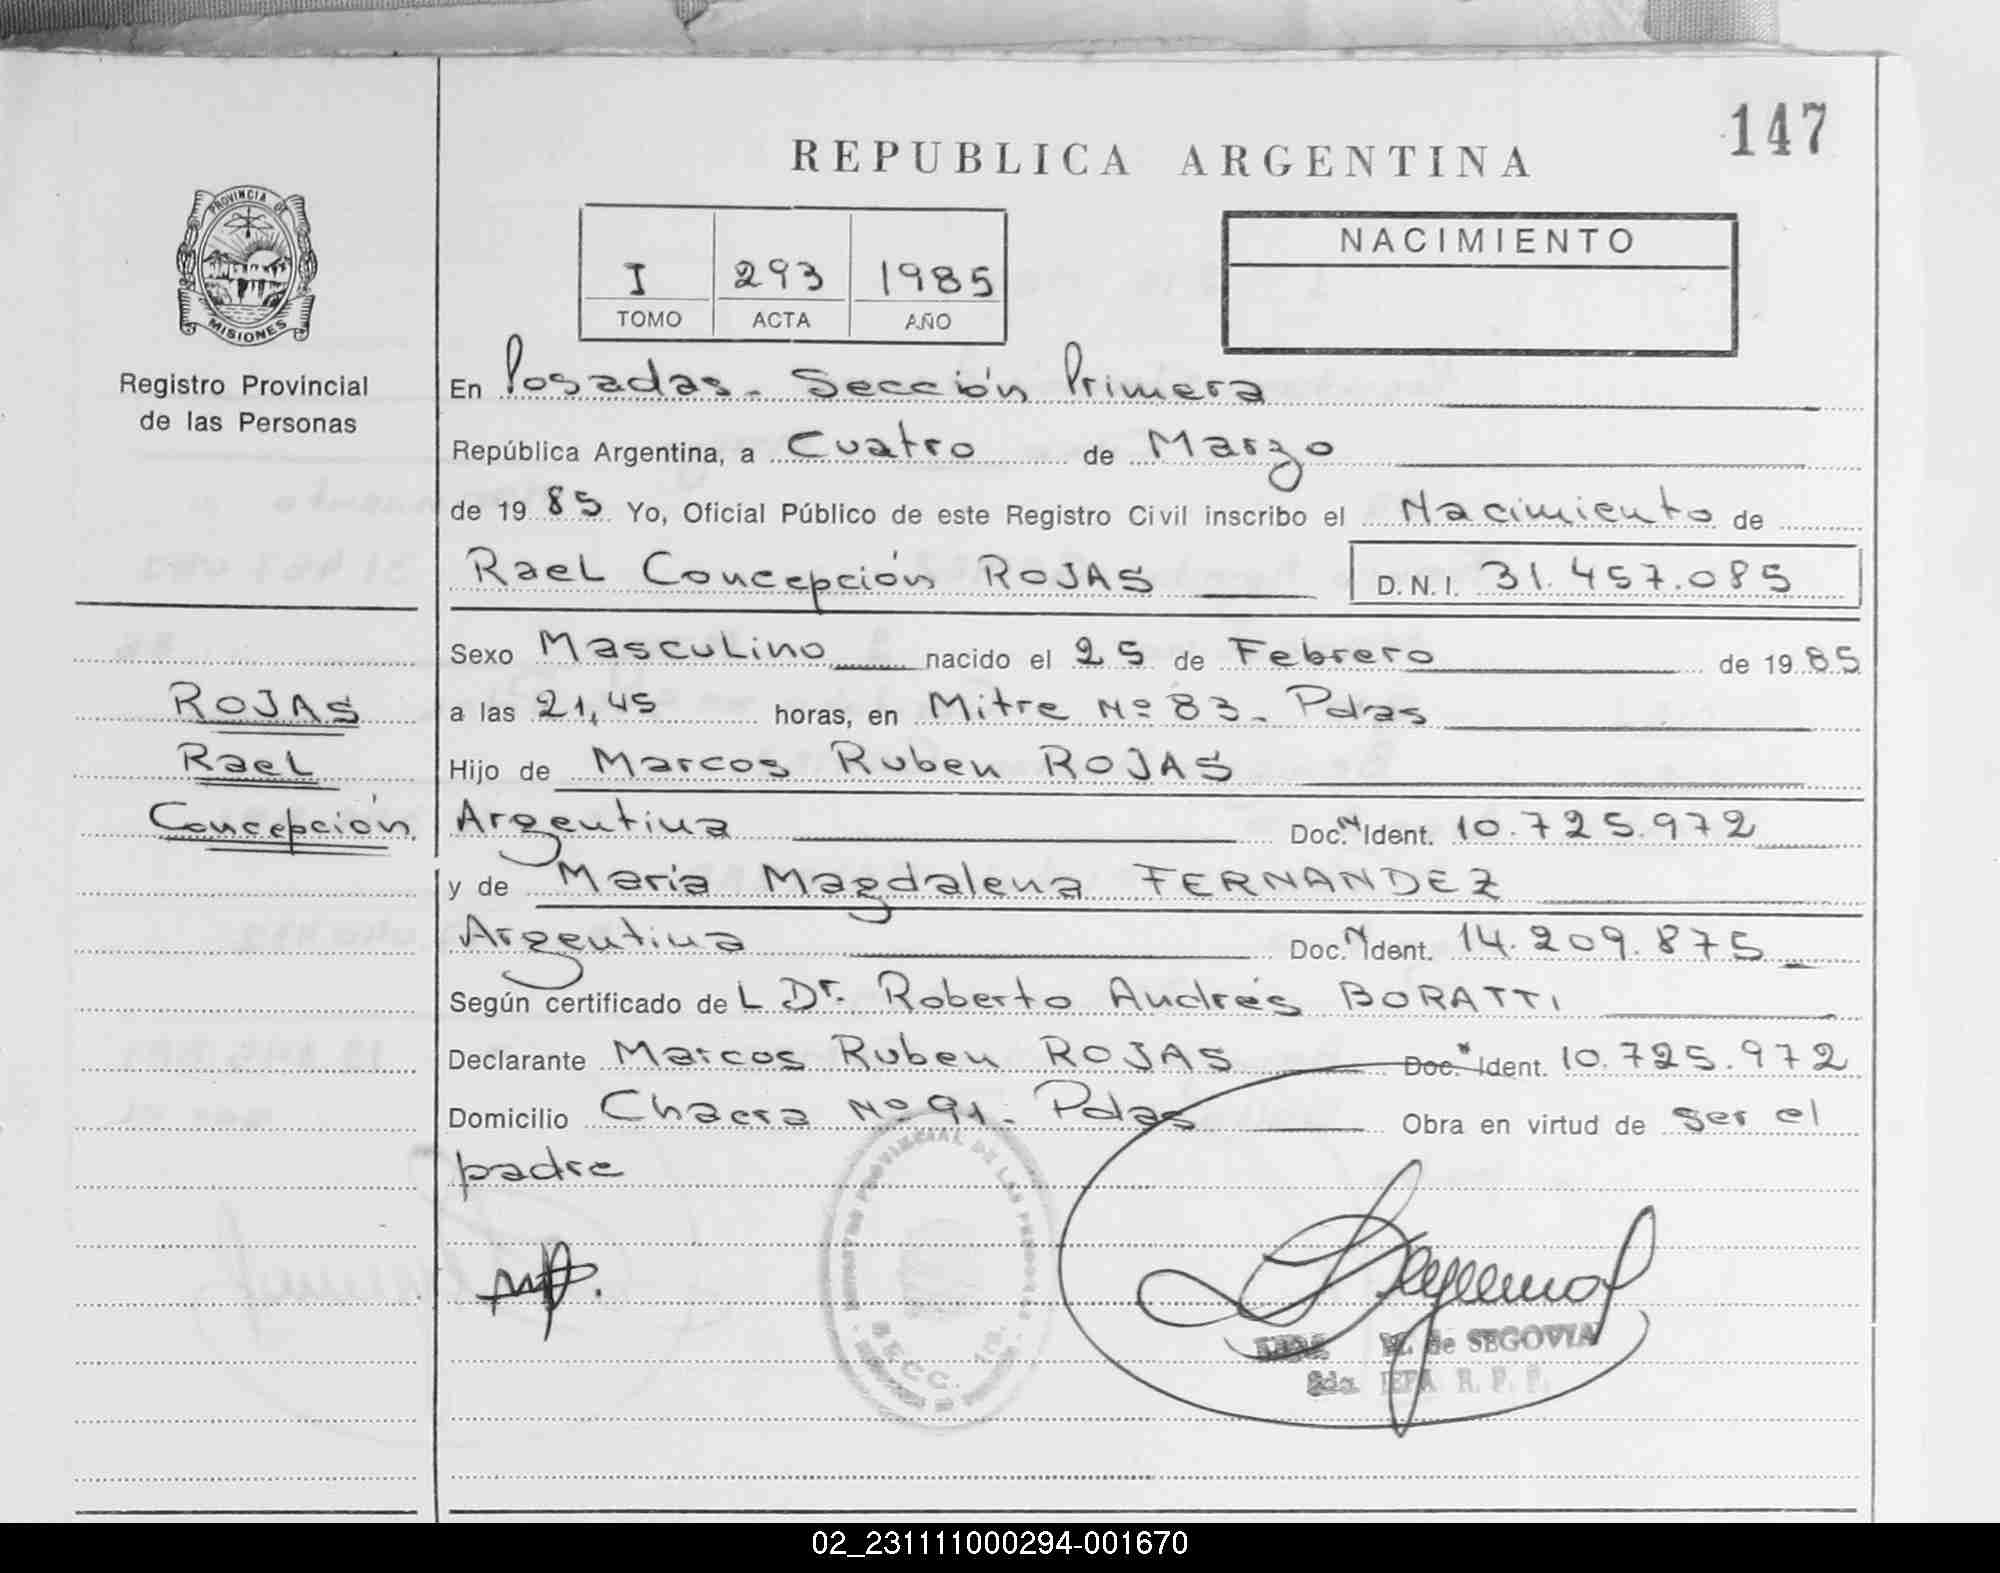 147
REPUBLICA ARGENTINA
PROVINCIA DE
MISIONES
Registro Provincial
de las Personas
I 293 1985
TOMO ACTA AÑO
NACIMIENTO
En Posadas - Sección Primera
República Argentina, a Cuatro de Marzo
de 19 85 Yo, Oficial Público de este Registro Civil inscribo el Nacimiento de
Rael Concepción ROJAS D.N.I. 31.457.085
Sexo Masculino nacido el 25 de Febrero de 19 85
ROJAS
Rael
Concepción
a las 21,45 horas, en Mitre Nº 83 - Pdas
Hijo de Marcos Ruben ROJAS
Argentina Doc. N Ident. 10.725.972
y de María Magdalena FERNANDEZ
Argentina Doc. N Ident. 14.209.875
Según certificado de L Dr. Roberto Andrés BORATTI
Declarante Marcos Ruben ROJAS Doc. Ident. 10.725.972
Domicilio Chacra Nº 91 - Pdas Obra en virtud de ser el
padre
PROVINCIAL DE LAS PERSONAS
SECC. 1a.
M. de SEGOVIA
2da. JEFA R. P. P.
02_231111000294-001670